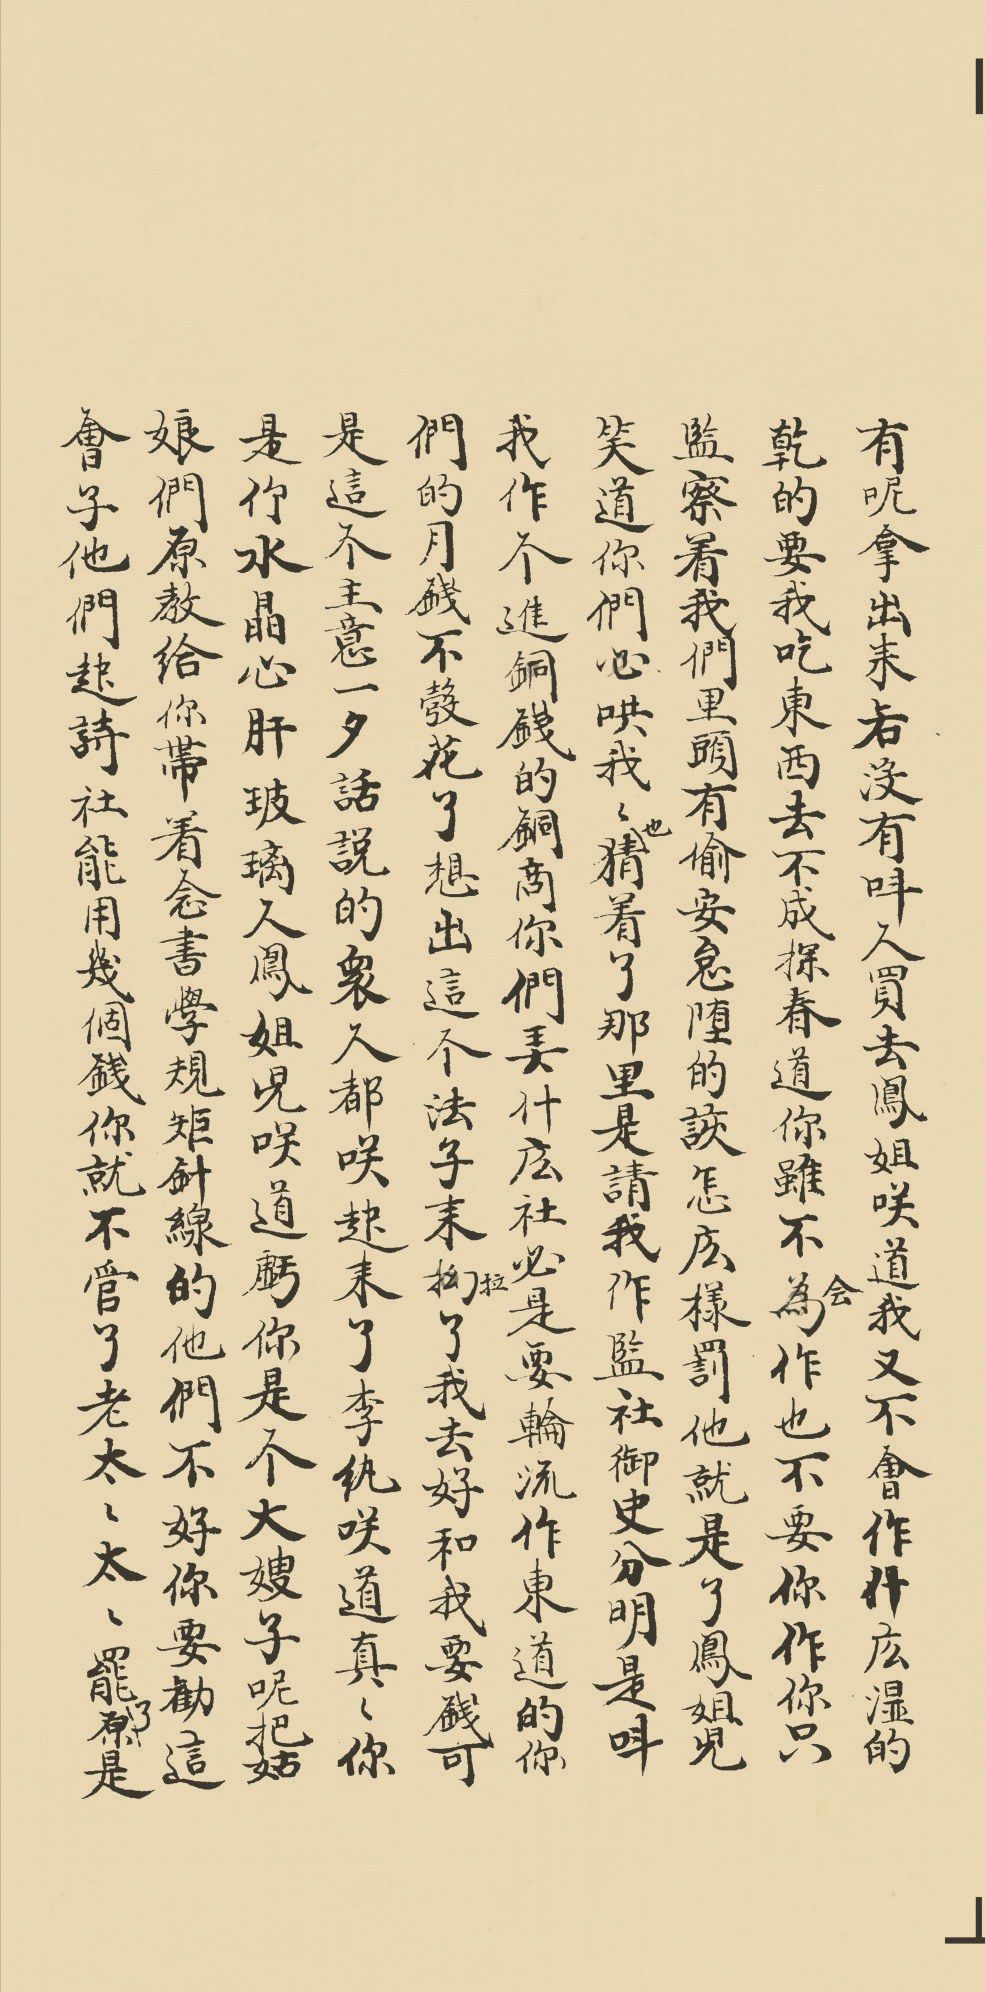 有呢拿出来若没有叫人買去鳳姐咲道我又不會作什庅湿的
乾的要我吃東西去不成探春道你雖不會为作也不要你作你只
監察着我們里頭有偷安怠堕的該怎庅樣罰他就是了鳳姐児
笑道你們必哄我〻也猜着了那里是請我作監社御史分明是叫
我作个進銅錢的銅商你們弄什庅社必是要輪流作東道的你
們的月錢不彀花了想出這个法子来拗拉了我去好和我要錢可
是這个主意一夕話説的衆人都咲起来了李紈咲道真〻你
是个水晶心肝玻璃人鳳姐児咲道虧你是个大嫂子呢把姑
娘們原教給你帶着念書學規矩針線的他們不好你要勸這
會子他們起詩社能用幾個錢你就不管了老太〻太〻罷了原是